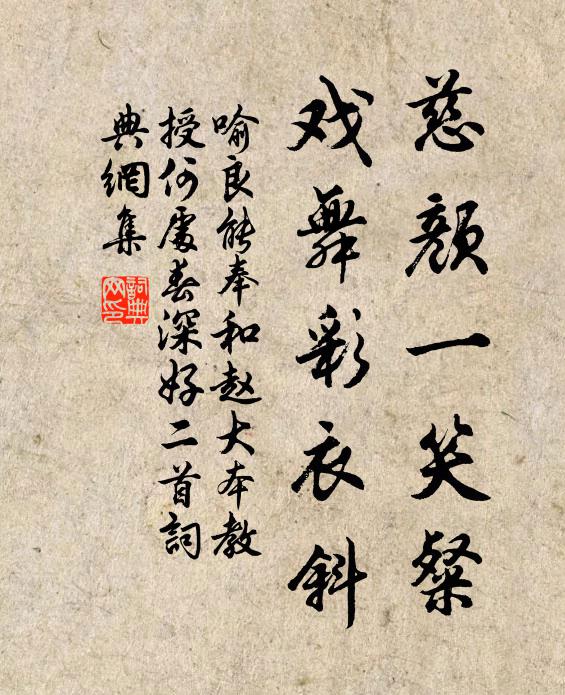 慈颜一笑粲
戏舞彩衣斜
喻良能奉和赵大本教
授何处春深好二首詞
典網集
詞典
网印